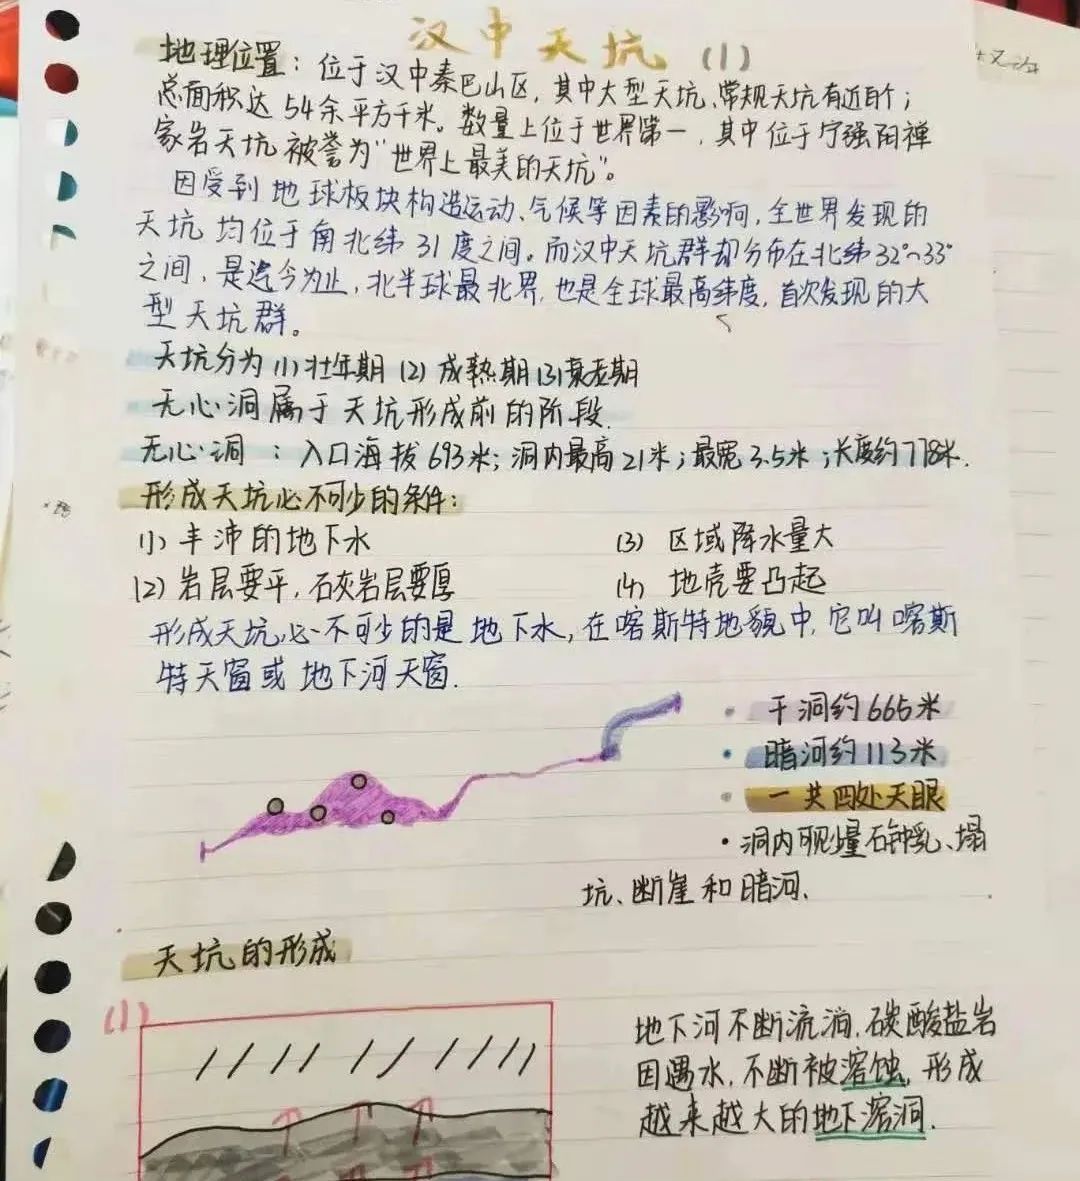 汉中天坑 (1)
地理位置：位于汉中秦巴山区，其中大型天坑、常规天坑有近百个；
总面积达54余平方千米。数量上位于世界第一，其中位于宁强阳禅
家岩天坑被誉为"世界上最美的天坑"。
因受到地球板块构造运动、气候等因素的影响，全世界发现的
天坑均位于南北纬31度之间。而汉中天坑群却分布在北纬32°~33°
之间，是迄今为止，北半球最北界，也是全球最高纬度，首次发现的大
型天坑群。
天坑分为(1)壮年期(2)成熟期(3)衰老期
无心洞属于天坑形成前的阶段.
无心洞：入口海拔693米；洞内最高21米；最宽3.5米；长度约778米.
形成天坑必不可少的条件：
(1)丰沛的地下水 (3)区域降水量大
(2)岩层要平，石灰岩层要厚 (4)地壳要凸起
形成天坑必不可少的是地下水，在喀斯特地貌中，它叫喀斯
特天窗或地下河天窗.
·干洞约665米
·暗河约113米
·一共四处天眼
·洞内可见量石钟乳、塌
坑、断崖和暗河.
天坑的形成
(1)
地下河不断流淌，碳酸盐岩
因遇水，不断被溶蚀，形成
越来越大的地下溶洞.